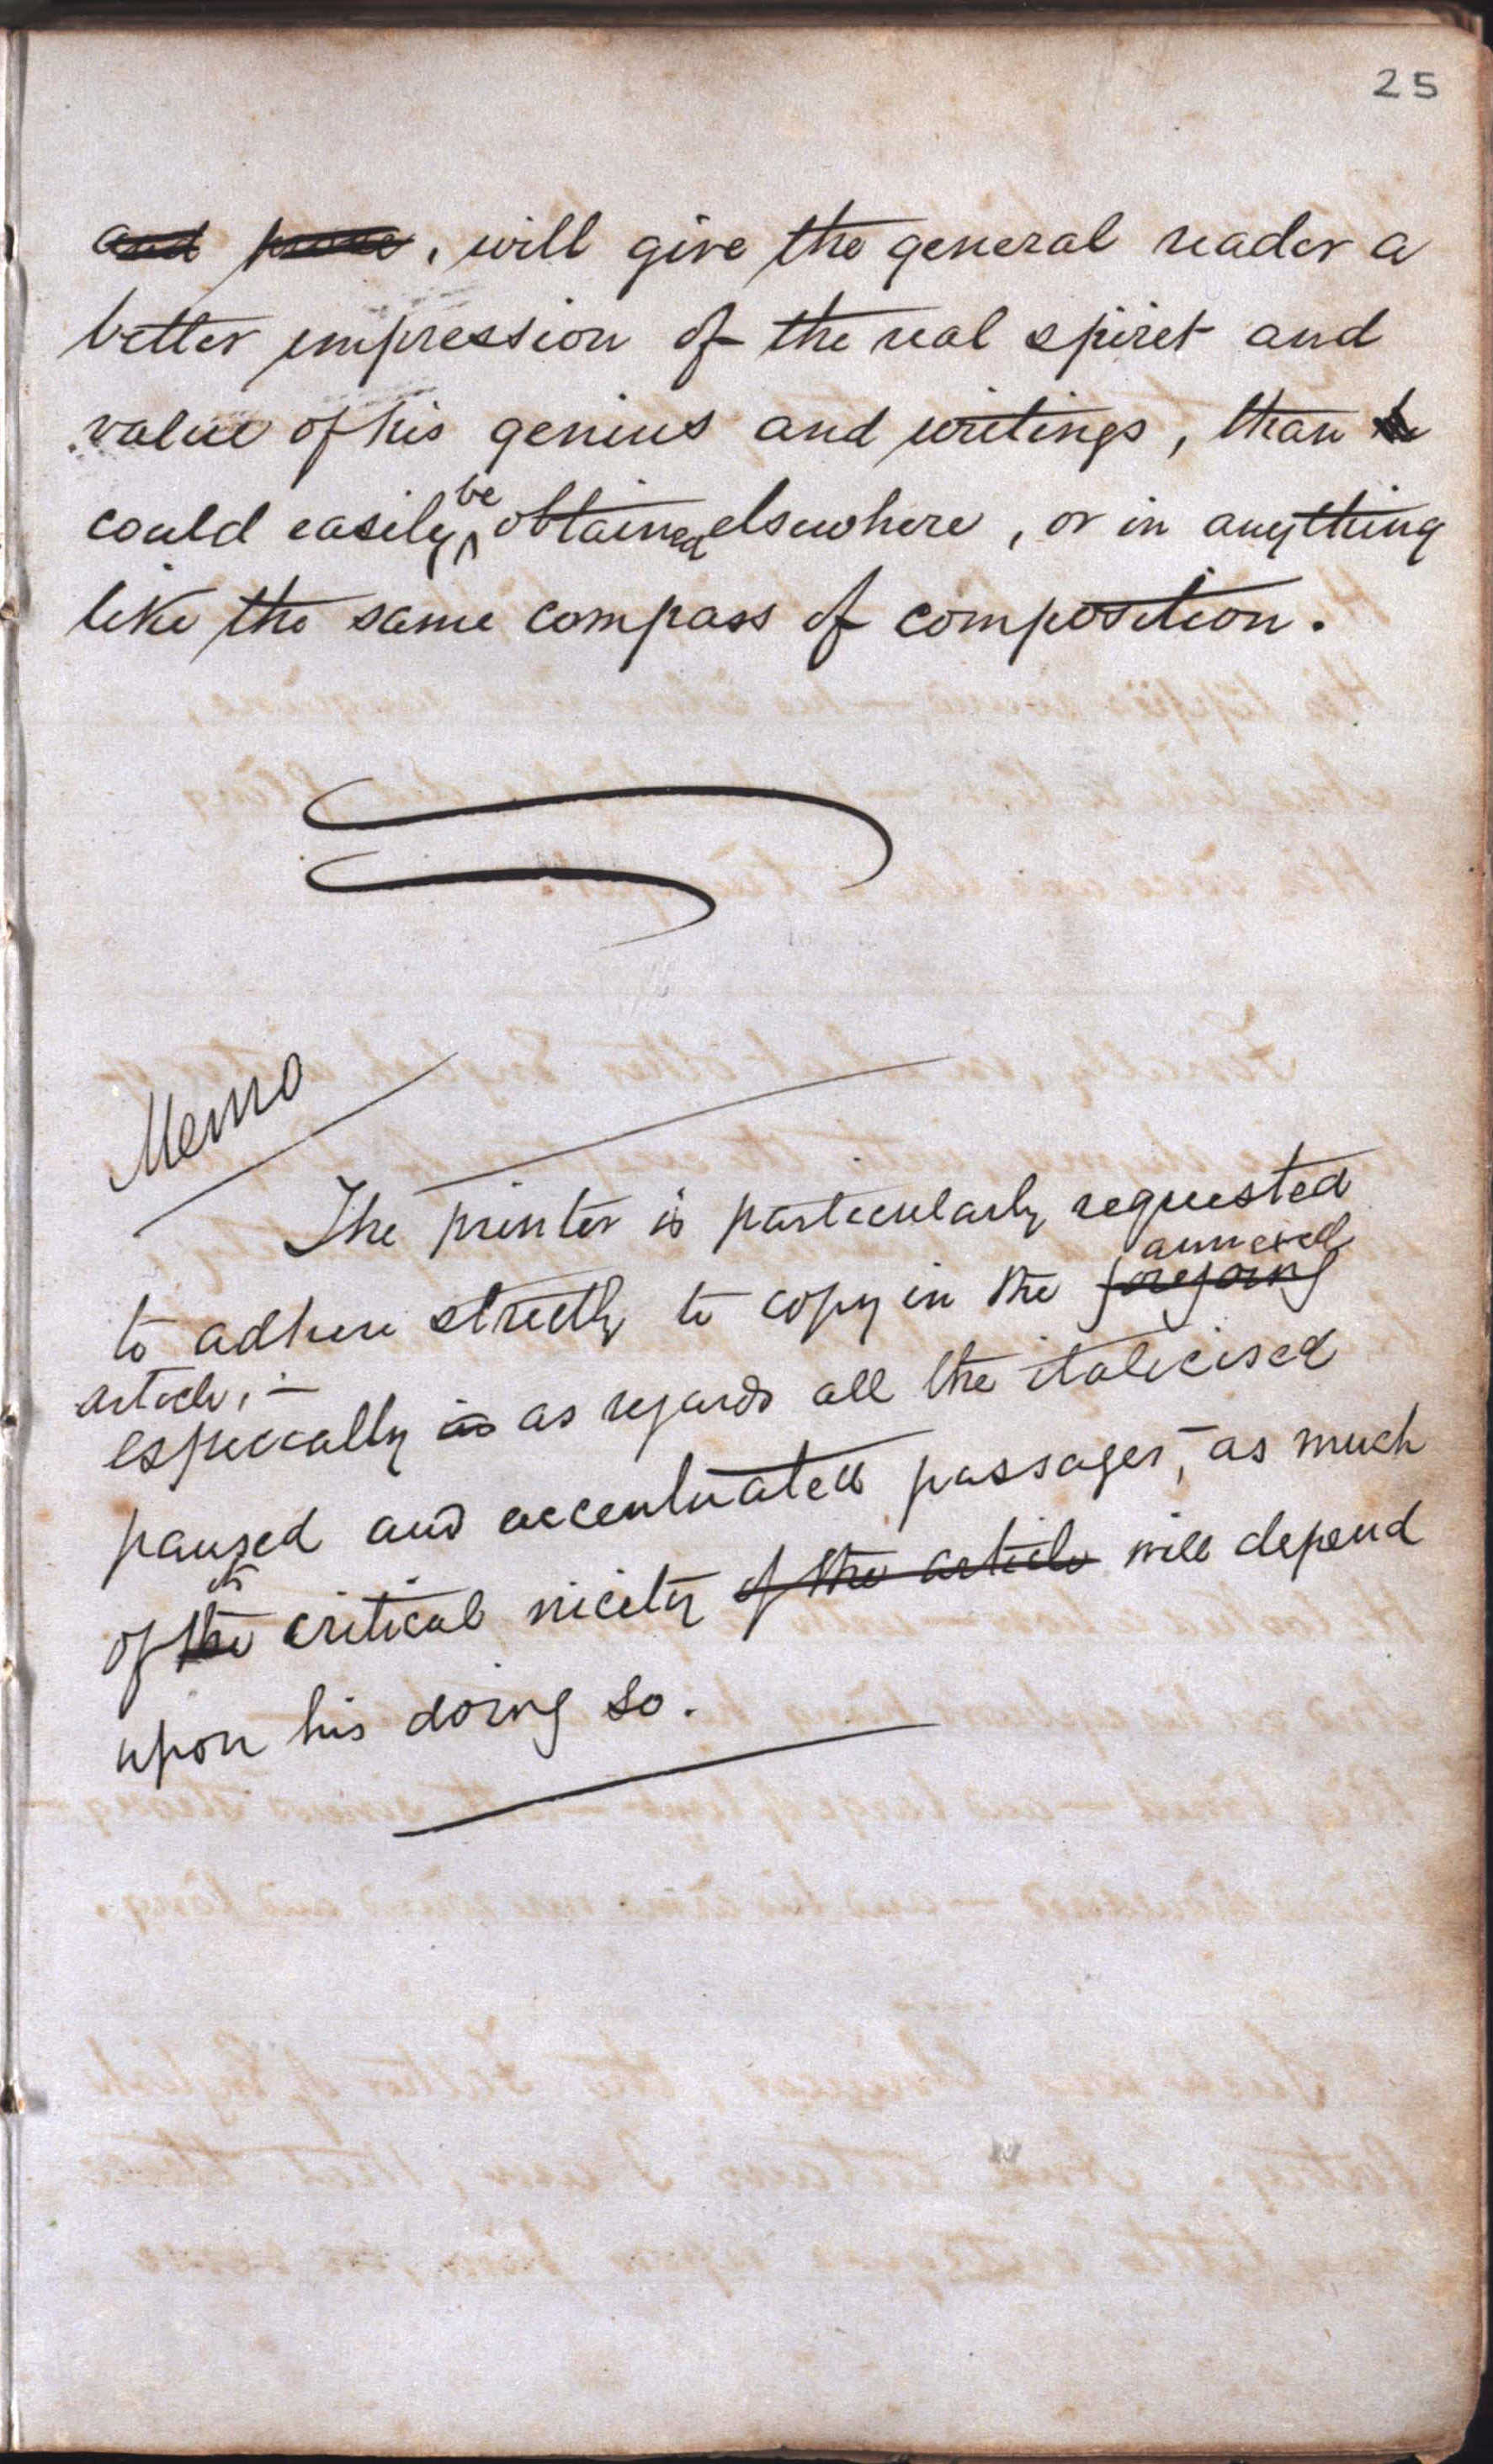 25
and prose, will give the general reader a
better impression of the real spirit and
value of his genius and writings, than
could easily be obtained elsewhere, or in anything
like the same compass of composition.
Memo
The printer is particularly requested
annexed
to adhere strictly to copy in the foregoing
article, —
especially as as regards all the italicised
paused and accentuated passages, as much
its
of the critical nicety of the article will depend
upon his doing so.